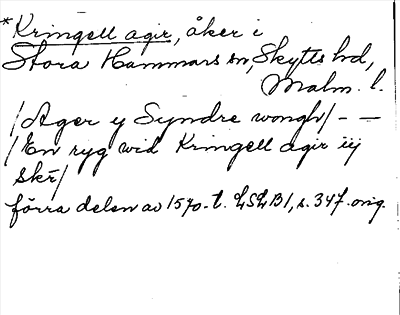 *Kringell agir, åker i
Stora Hammars sn, Skytts hd,
Malm. l.
/Ager y Syndre wongh/ - -
/En ryg wid Kringell agir iij
skr/
förra delen av 1570-t. LSLB1, s. 347. orig.